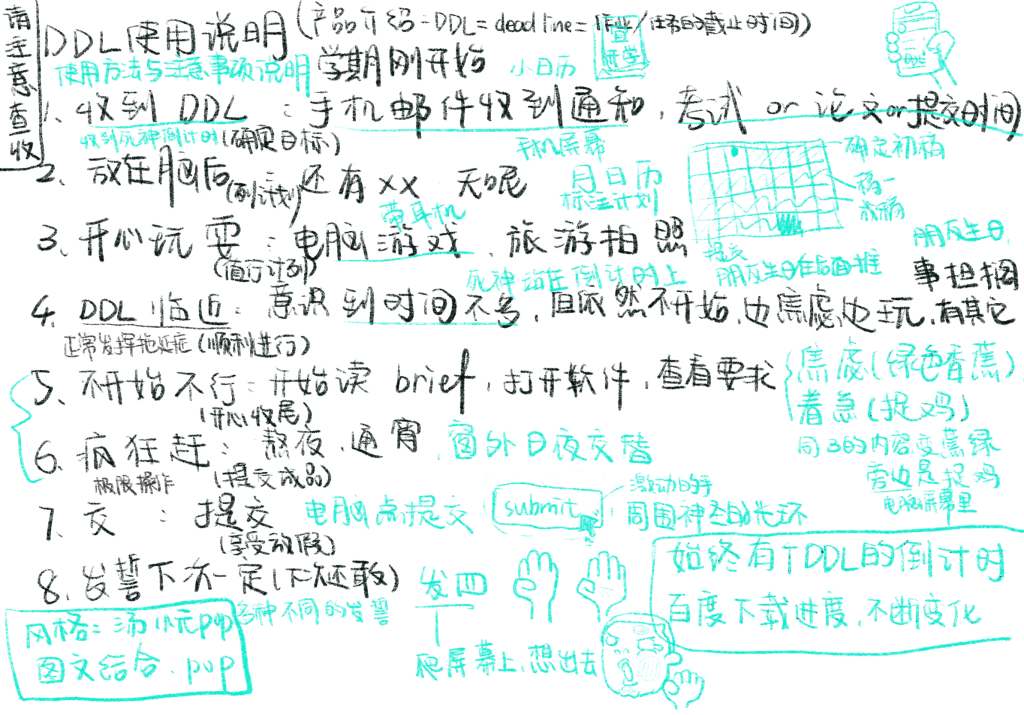 请注意查收
DDL使用说明(产品介绍-DDL=deadline=作业/任务的截止时间)
使用方法与注意事项说明 学期刚开始 小日历 宜 开学
1、收到DDL：手机邮件收到通知，考试or论文or提交时间
收到死神倒计时(确定目标) 手机屏幕 确定初稿
2、放在脑后：还有xx天呢 月日历
(列计划) 标注计划 稿一
戴耳机 改稿
3、开心玩耍：电脑游戏、旅游拍照 提交 朋友生日，
(值行计划) 死神站在倒计时上 朋友生日在后面推 事担搁
4、DDL临近：意识到时间不多，但依然不开始，也焦虑也玩，有其它
正常发挥拖延症(顺利进行)
5、不开始不行：开始读brief，打开软件，查看要求 焦虑(绿色香蕉)
(开心收尾) 着急(捉鸡)
6、疯狂赶：熬夜、通宵 窗外日夜交替 同3的内容变蕉绿
极限操作(提交成品) 旁边是捉鸡
激动的手 电脑屏幕里
7、交：提交 电脑点提交 submit 周围神圣的光环
(享受放假)
8、发誓下次一定(下次还敢) 发四 始终有个DDL的倒计时
各种不同的发誓 百度下载进度，不断变化
风格：汤小元pop 爬屏幕上，想出去
图文结合、pop